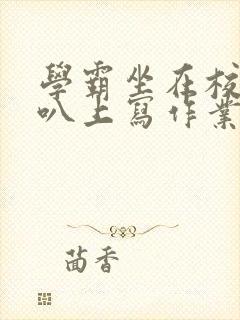 學霸坐在校
叭上寫作業
茴香